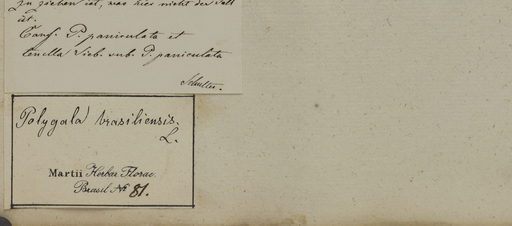 zu ziehen ist, was hier nicht der Fall
ist.
Conf. P. paniculata et
tenella Sieb. sub. P. paniculata
Polygala brasiliensis.
L.
Martii Herbar. Florae.
Brasil. No 81.